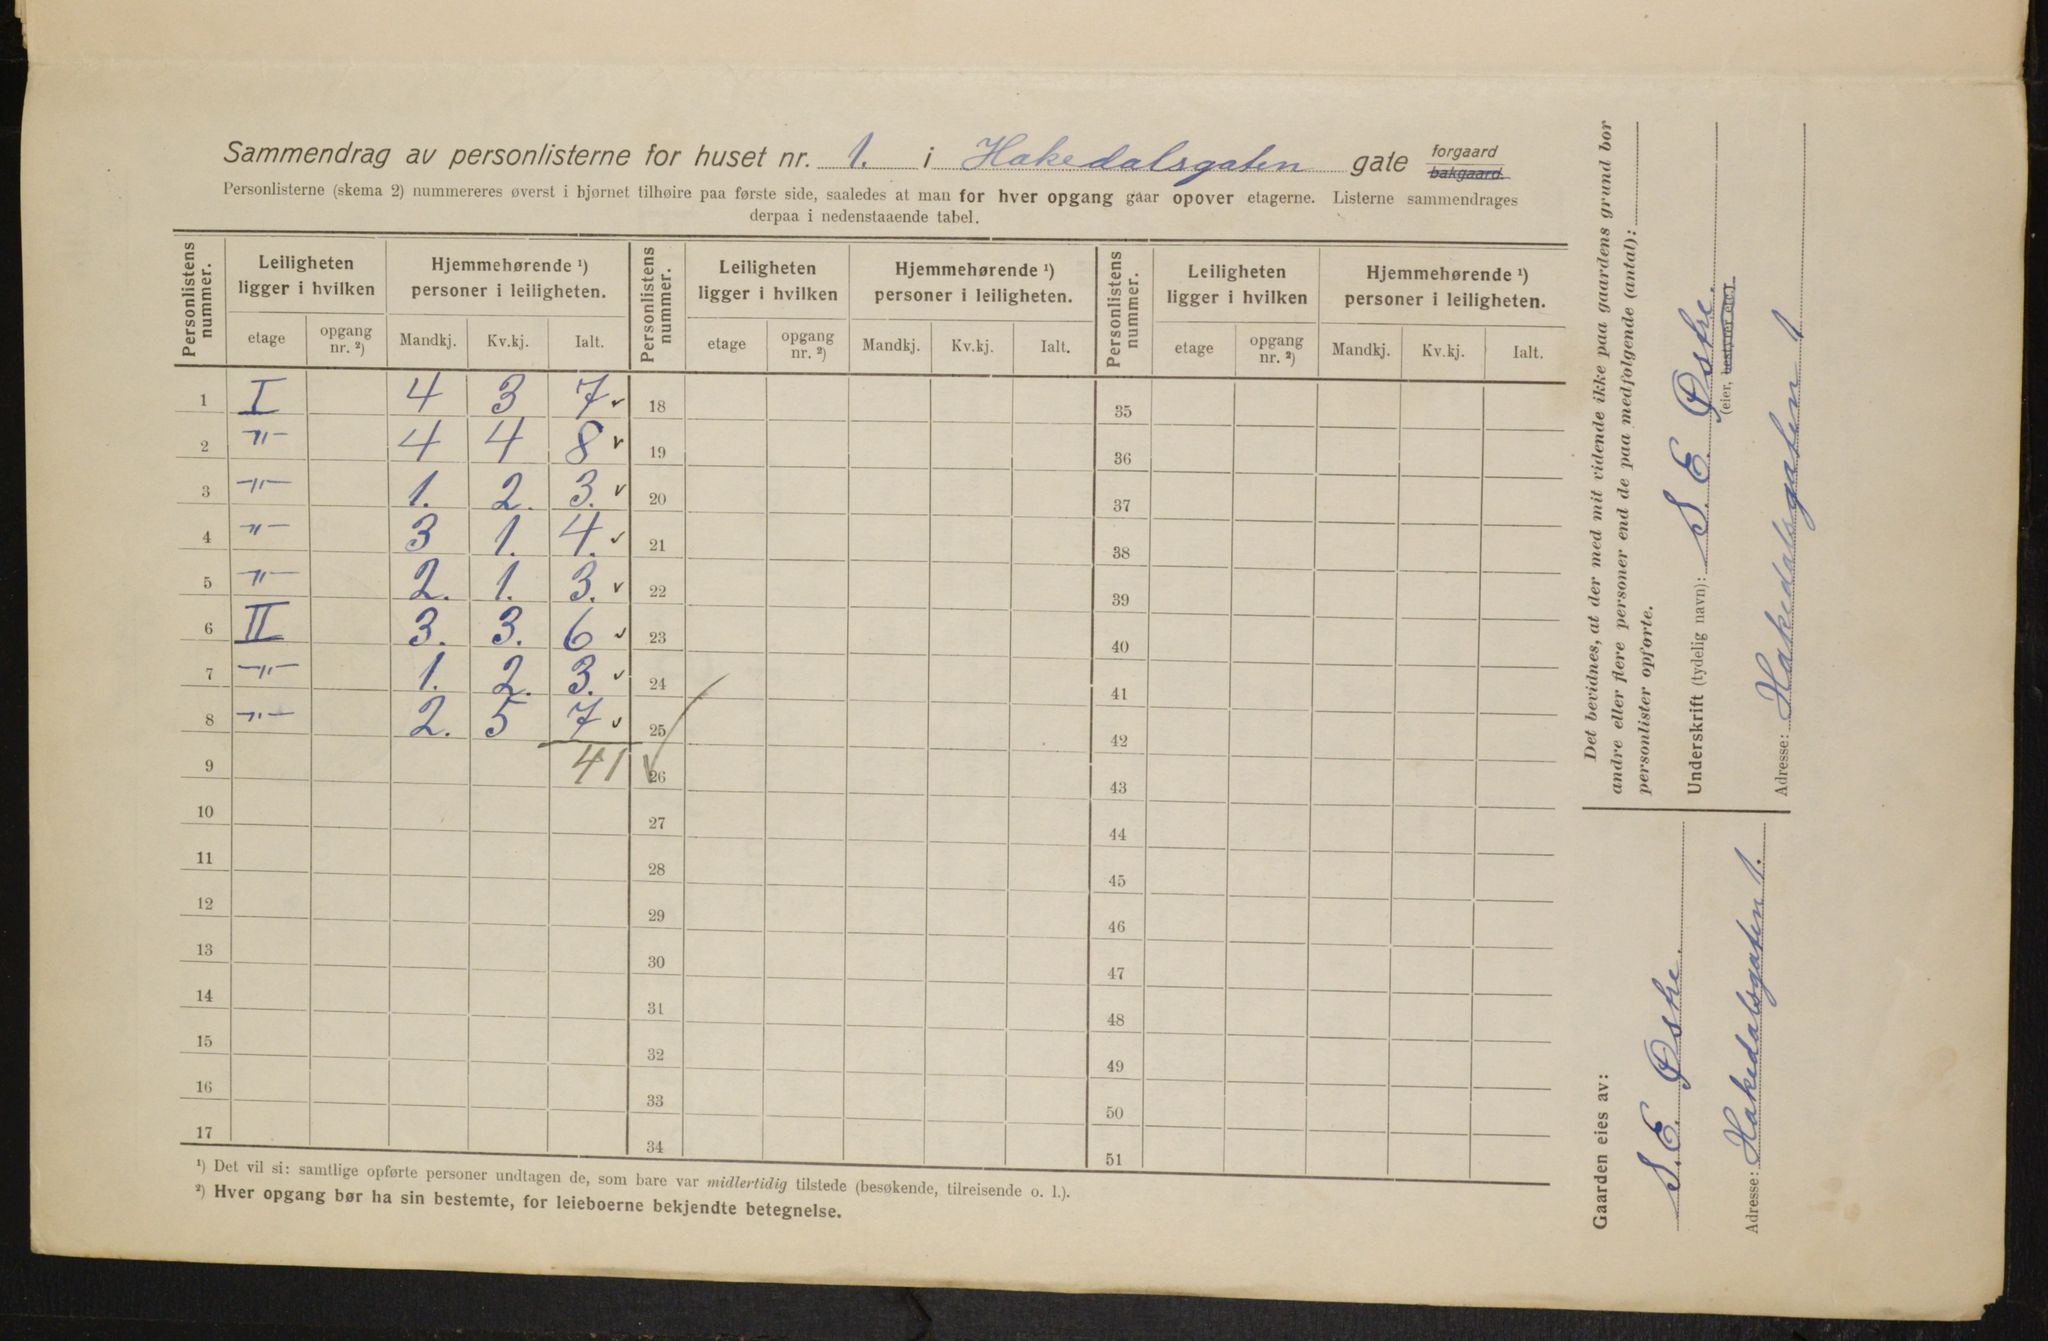 Sammendrag av personlisterne for huset nr. 1. i Hakedalsgaten gate forgaard bakgaard.
Personlisterne (skema 2) nummereres øverst i hjørnet tilhøire paa første side, saaledes at man for hver opgang gaar opover etagerne. Listerne sammendrages
derpaa i nedenstaaende tabel.
Personlistens nummer. Leiligheten ligger i hvilken Hjemmehørende ¹) personer i leiligheten. Personlistens nummer. Leiligheten ligger i hvilken Hjemmehørende ¹) personer i leiligheten. Personlistens nummer. Leiligheten ligger i hvilken Hjemmehørende ¹) personer i leiligheten.
etage opgang nr. ²) Mandkj. Kv.kj. Ialt. etage opgang nr. ²) Mandkj. Kv.kj. Ialt. etage opgang nr. ²) Mandkj. Kv.kj. Ialt.
1 I 4 3 7 ✓ 18 35
2 -"- 4 4 8 ✓ 19 36
3 -"- 1. 2. 3. ✓ 20 37
4 -"- 3 1. 4. ✓ 21 38
5 -"- 2. 1. 3. ✓ 22 39
6 II 3. 3. 6 ✓ 23 40
7 -"- 1. 2. 3. ✓ 24 41
8 -"- 2. 5 7 ✓ 25 42
9 41 ✓ 26 43
10 27 44
11 28 45
12 29 46
13 30 47
14 31 48
15 32 49
16 33 50
17 34 51
¹) Det vil si: samtlige opførte personer undtagen de, som bare var midlertidig tilstede (besøkende, tilreisende o. l.).
²) Hver opgang bør ha sin bestemte, for leieboerne bekjendte betegnelse.
Det bevidnes, at der med mit vidende ikke paa gaardens grund bor
andre eller flere personer end de paa medfølgende (antal):
personlister opførte.
Underskrift (tydelig navn): S. E. Østre.
(eier, bestyrer etc.)
Adresse: Hakedalsgaten 1
Gaarden eies av:
S. E. Østre.
Adresse: Hakedalsgaten 1.